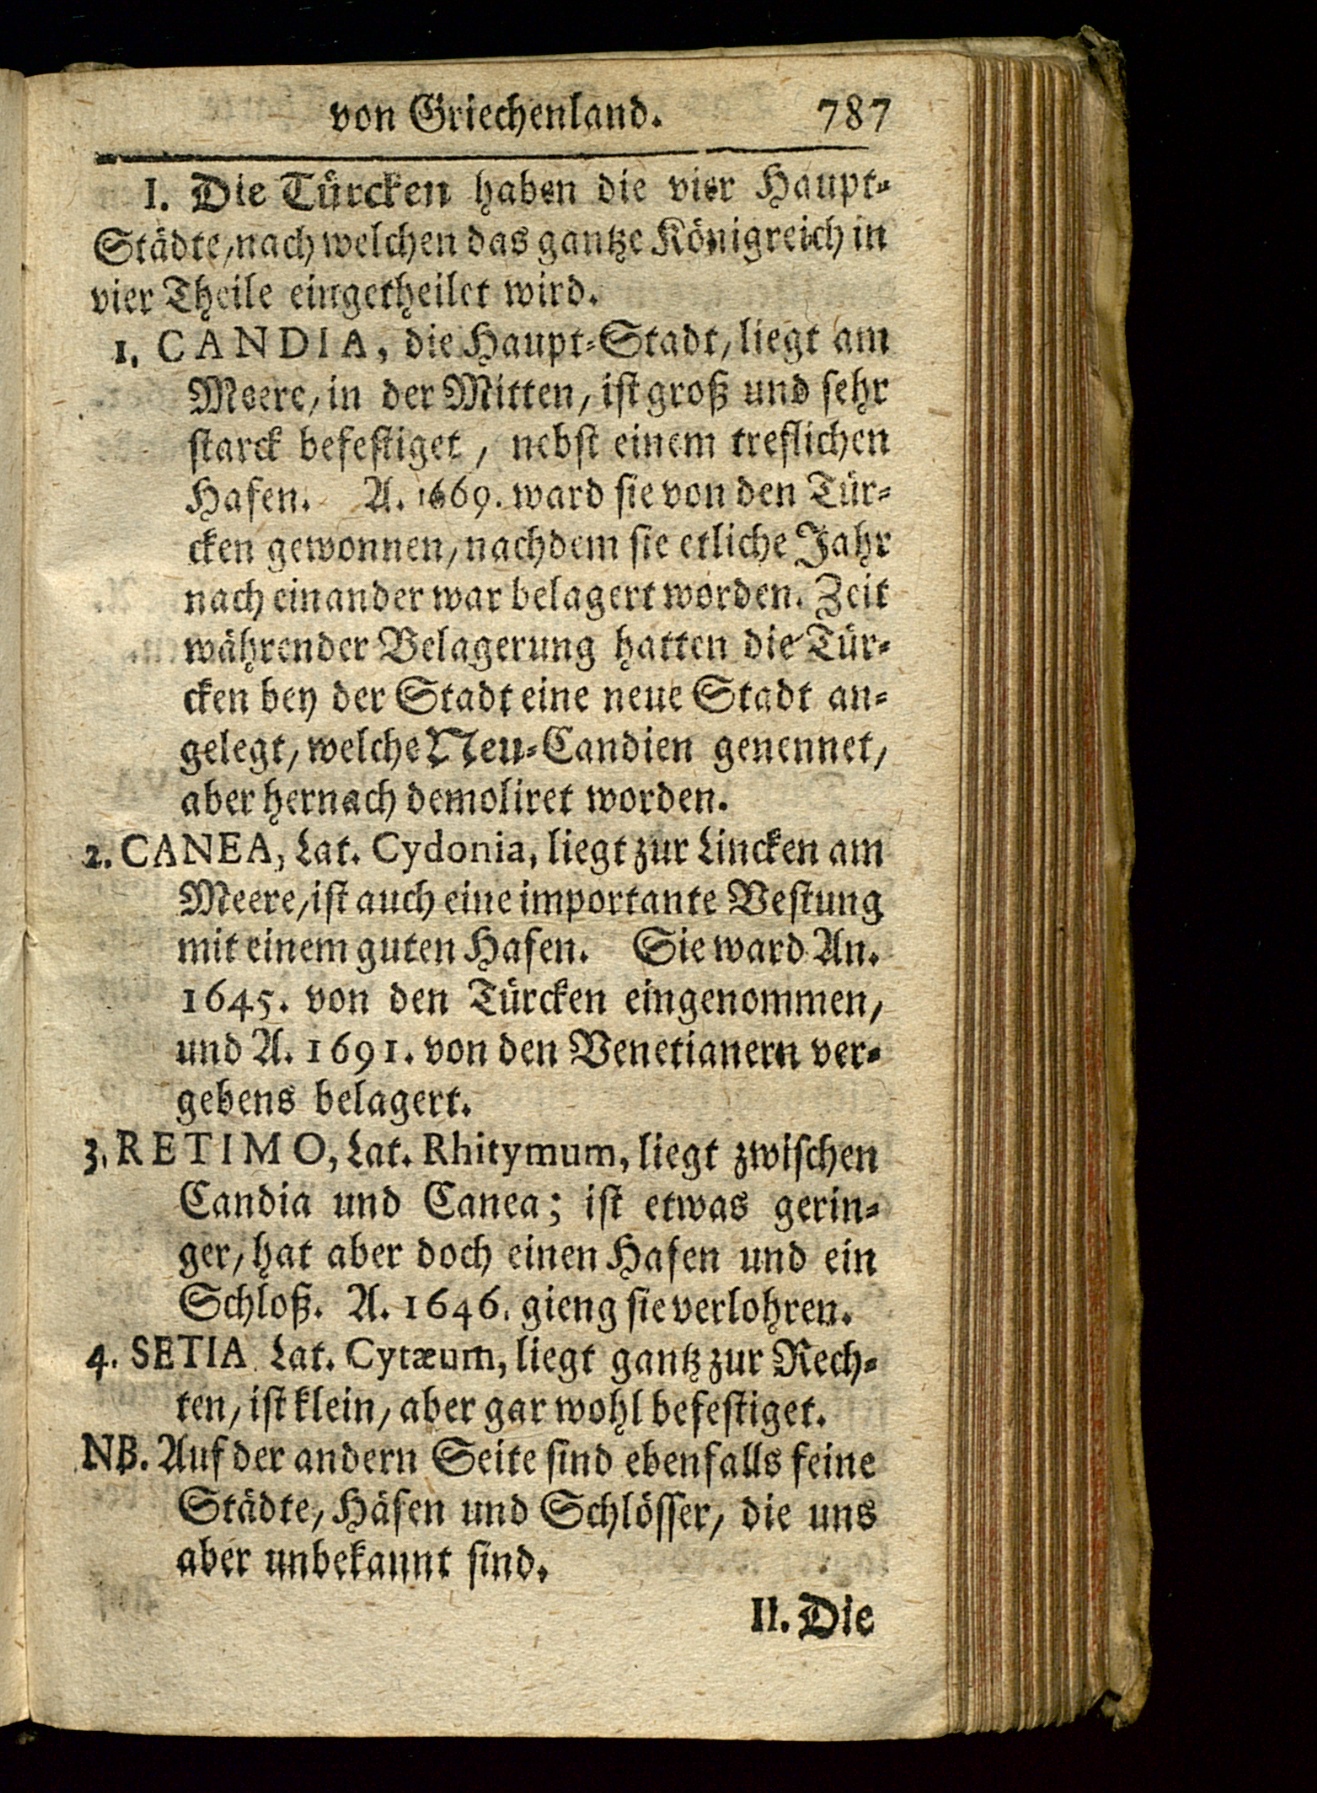 von Griechenland. 787
I. Die Türcken haben die vier Haupt-
Städte/nach welchen das gantze Königreich in
vier Theile eingetheilet wird.
1. CANDIA, die Haupt-Stadt/liegt am
Meere/in der Mitten/ist groß und sehr
starck befestiget/ nebst einem treflichen
Hafen. A. 1669. ward sie von den Tür-
cken gewonnen/nachdem sie etliche Jahr
nach einander war belagert worden. Zeit
währender Belagerung hatten die Tür-
cken bey der Stadt eine neue Stadt an-
gelegt/welche Neu-Candien genennet/
aber hernach demoliret worden.
2. CANEA, Lat. Cydonia, liegt zur Lincken am
Meere/ist auch eine importante Vestung
mit einem guten Hafen. Sie ward An.
1645. von den Türcken eingenommen/
und A. 1691. von den Venetianern ver-
gebens belagert.
3. RETIMO, Lat. Rhitymum, liegt zwischen
Candia und Canea; ist etwas gerin-
ger/hat aber doch einen Hafen und ein
Schloß. A. 1646. gieng sie verlohren.
4. SETIA Lat. Cytæum, liegt gantz zur Rech-
ten/ist klein/aber gar wohl befestiget.
NB. Auf der andern Seite sind ebenfalls feine
Städte/Häfen und Schlösser/ die uns
aber unbekannt sind.
II. Die